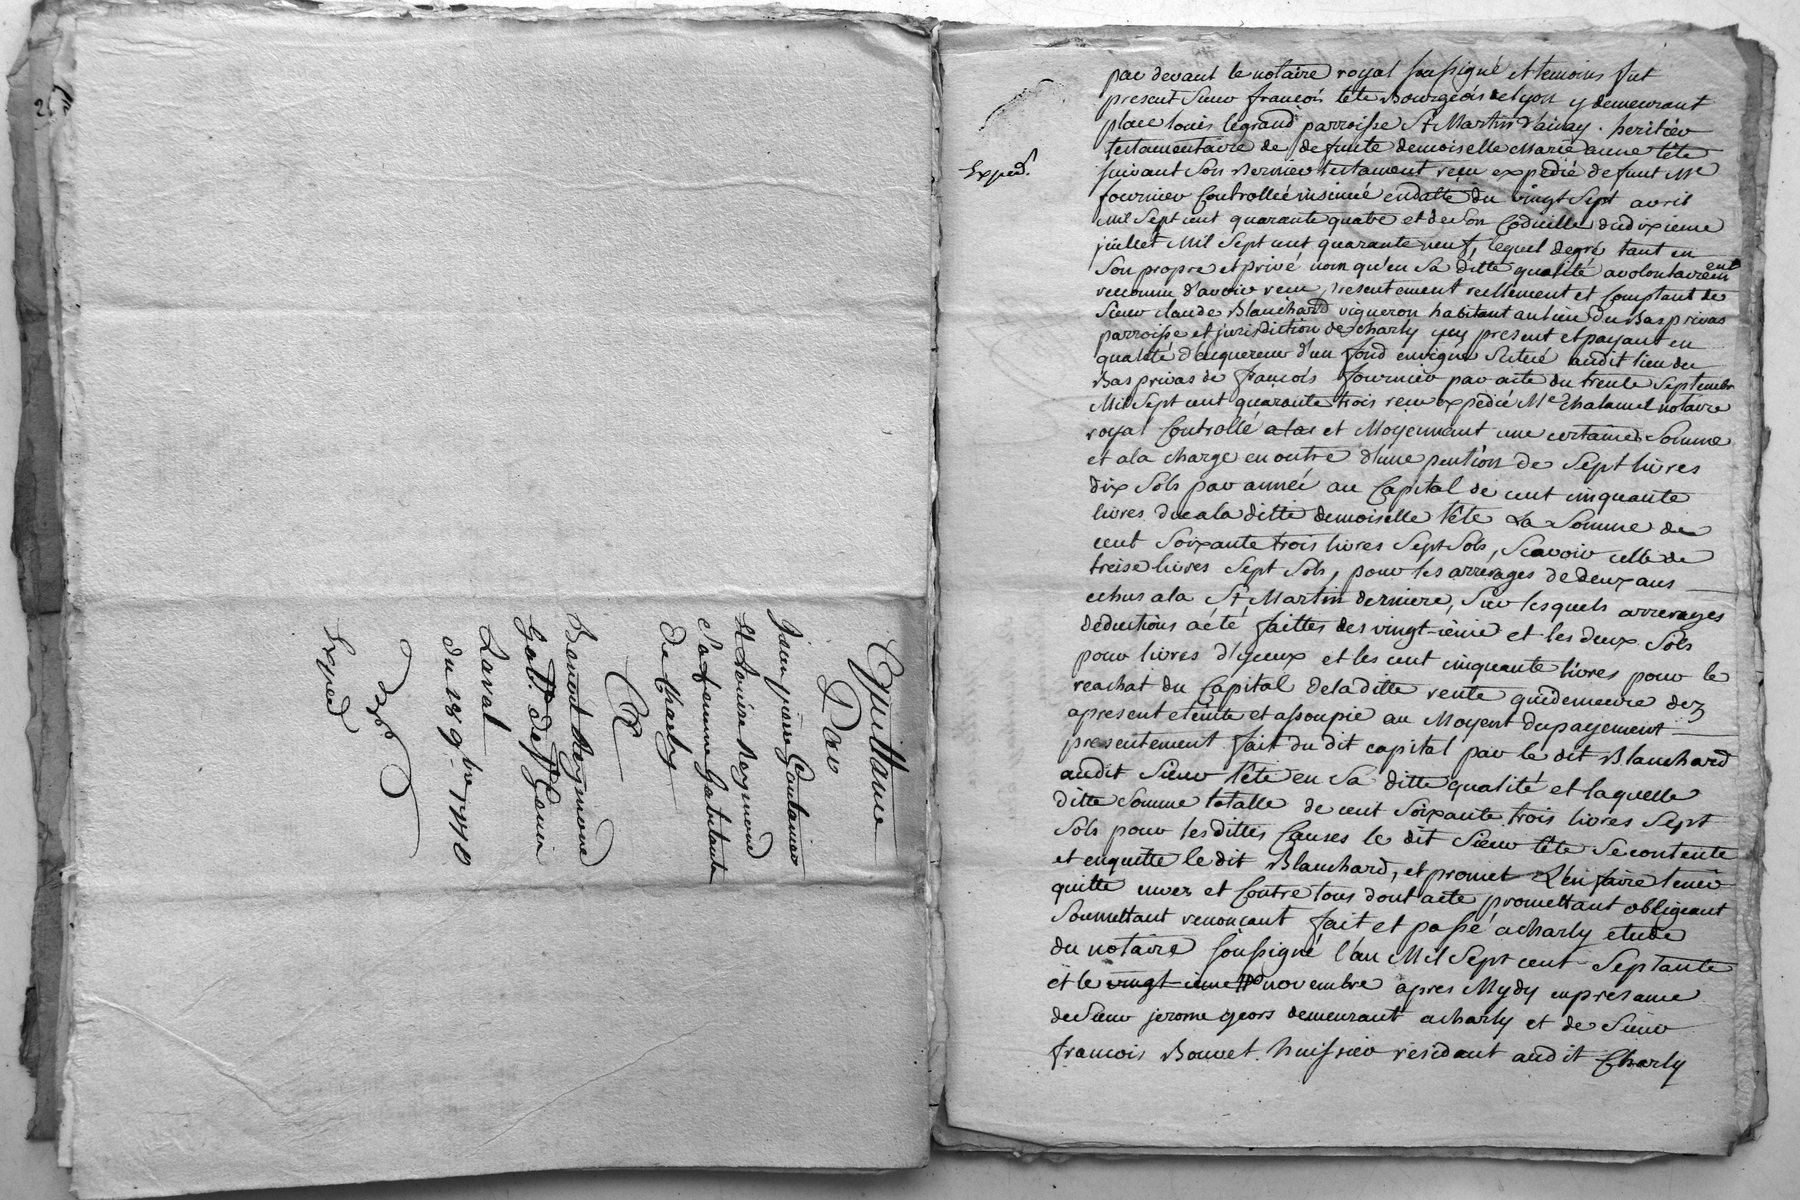 Quittance
Par
Jean pierre Coulaud
et Louise Reymond
Sa femme habitante
De Charly
A
Benoit Reymond
Laval
du 28 9.bre 1770
Exped
Exped.
par devant le notaire royal soussigné et temoins fut
present Sieur françois tête Bourgeois de lyon y demeurant
place louis le grand parroisse St Martin d'ainay . heritier
testamentaire de defunte demoiselle Marie anne tête
suivant Son dernier testament reçu expedié defunt Me
fournier Controllé insinué en datte du vingt Sept avril
mil Sept cent quarante quatre et de Son Codicille du dixieme
juillet Mil Sept cent quarante neuf, lequel degré tant en
Son propre et privé nom qu'en Sa ditte qualité a volontairement
reconnu d'avoir reçu presentement reellement et Comptant de
Sieur claude Blanchard vigneron habitant au lieu du Bas privas
parroisse et jurisdiction de charly icy present et payant en
qualité d'acquereur d'un fond en vigne Scitué audit lieu du
Bas privas de françois fournier par acte du trente Septembre
Mil Sept cent quarante trois reçu expedié Me Chalamel notaire
royal Controllé et Moyennant une certaine Somme
et a la charge en outre d'une pention de Sept livres
dix Sols par année au Capital de cent cinquante
livres due a la ditte demoiselle tête La Somme de
cent Soixante trois livres Sept Sols, Scavoir celle de
treise livres Sept Sols, pour les arrerages de deux ans
echus a la St Martin derniere, Sur lesquels arrerages
deductions a été faittes des vingt-ieme et les deux Sols
pour livres d'yceux et les cent cinquante livres pour le
reachat du Capital de la ditte rente qui demeure dez
apresent eteinte et assoupie au Moyent du payement
presentement fait du dit capital par le dit Blanchard
audit Sieur tête en Sa ditte qualité et laquelle
ditte Somme totalle de cent Soixante trois livres Sept
Sols pour les dittes Causes le dit Sieur tête Se contente
et en quitte le dit Blanchard, et promet L'en faire tenir
quitte envers et Contre tous dont acte promettant obligeant
Soumettant renonçant fait et passé a charly etude
du notaire soussigné l'an Mil Sept cent Septante
et le vingt-ieme novembre apres Mydy en presance
de Sieur jerome geors demeurant a charly et de Sieur
françois Bouvet . huissier residant audit Charly